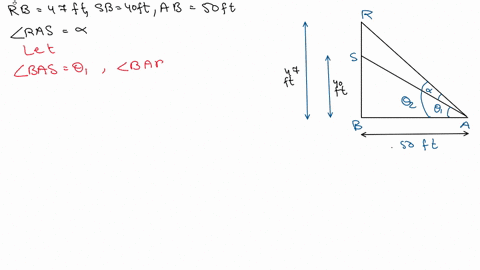 RB = 47 ft, SB = 40ft, AB = 50ft
∠RAS = α
Let
∠BAS = θ₁ , ∠BAR
R
S
47 ft
40 ft
α
θ₂
θ₁
B
A
50 ft